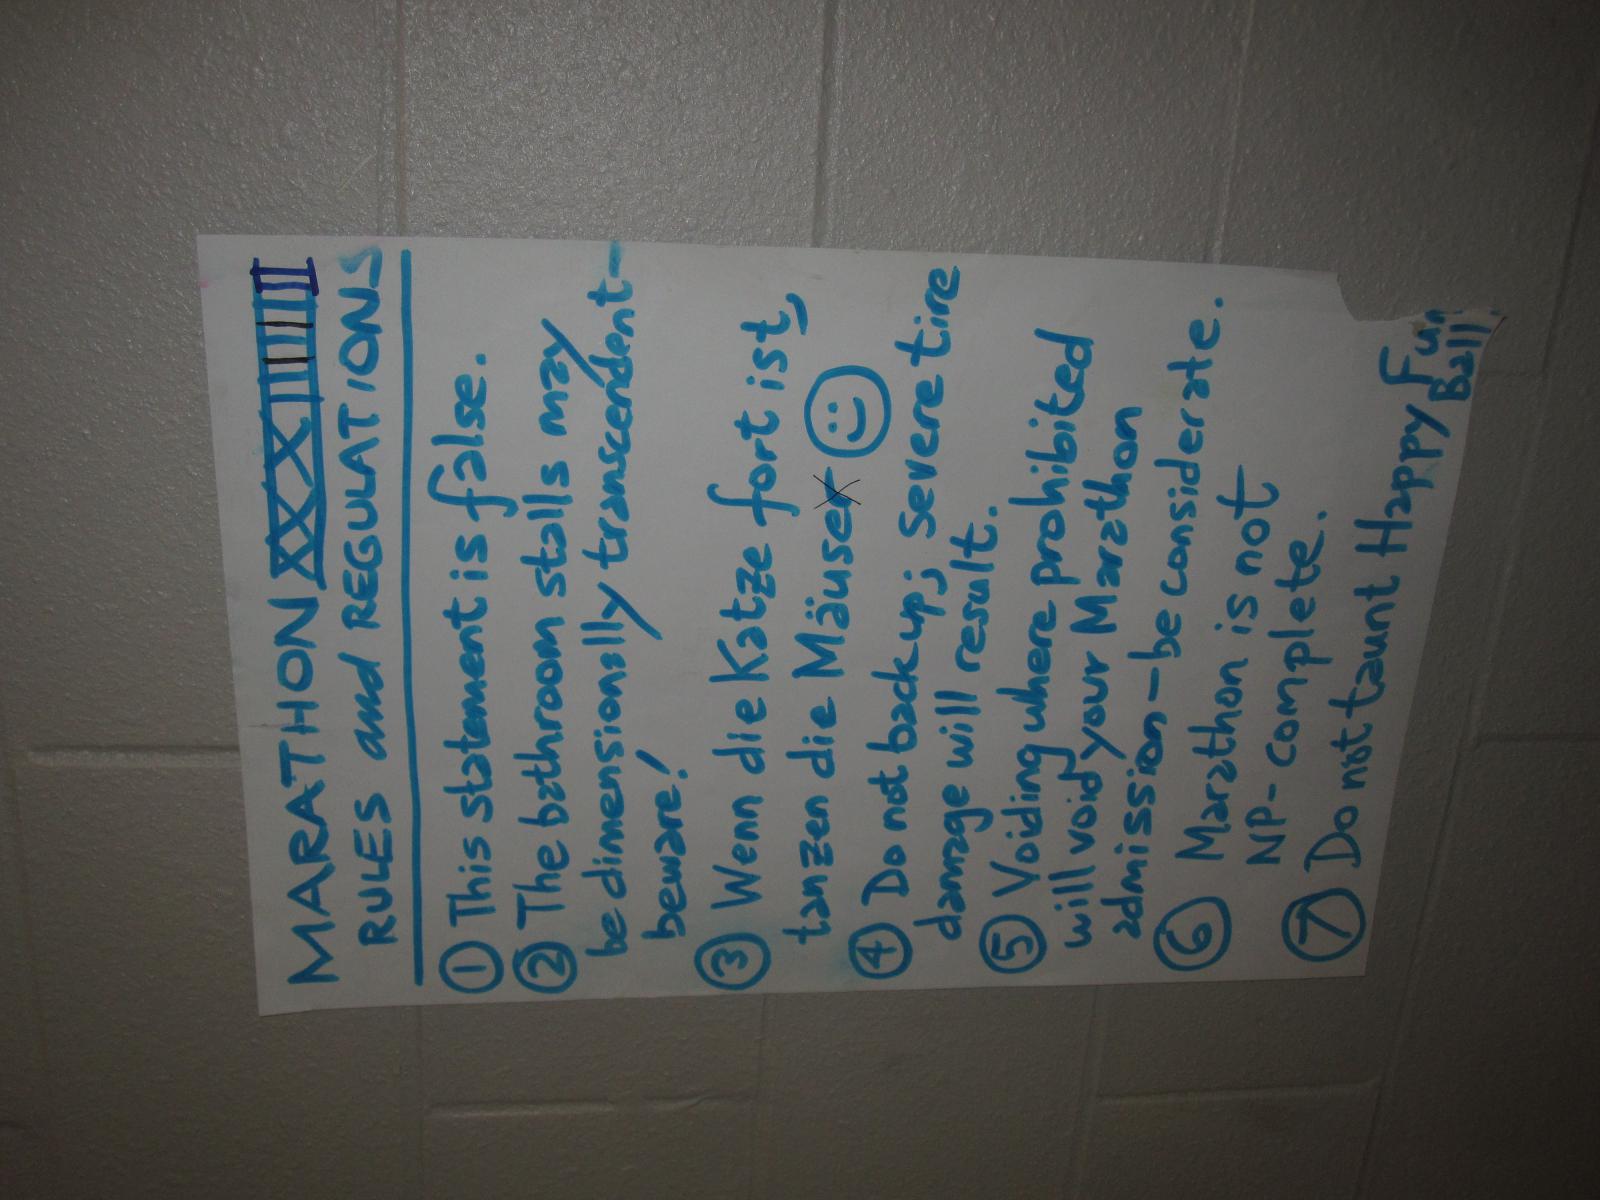 MARATHON XXXIIIIIIII
RULES and REGULATIONS
① This statement is false.
② The bathroom stalls may
be dimensionally transcendent—
beware!
③ Wenn die Katze fort ist,
tanzen die Mäuser ☺
④ Do not back up; severe tire
damage will result.
⑤ Voiding where prohibited
will void your Marathon
admission—be considerate.
⑥ Marathon is not
NP-complete.
⑦ Do not taunt Happy Fun
Ball.